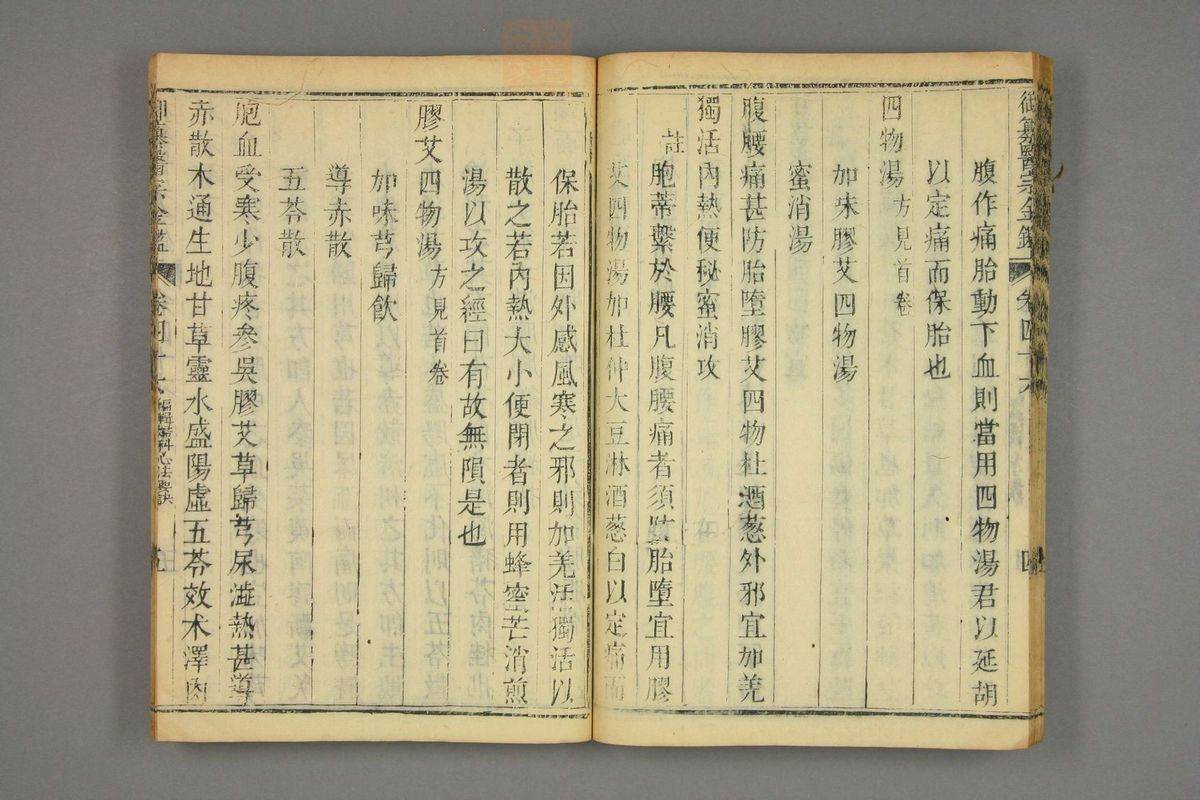 御纂醫宗金鑑 卷四十六 四
腹作痛胎動下血則當用四物湯君以延胡
以定痛而保胎也
四物湯 方見首卷
加味膠艾四物湯
蜜消湯
腹腰痛甚防胎墮膠艾四物杜酒葱外邪宜加羌
獨活內熱便秘蜜消攻
註 胞蒂繫於腰凡腹腰痛者須防胎墮宜用膠
艾四物湯加杜仲大豆淋酒葱白以定痛而
保胎若因外感風寒之邪則加羌活獨活以
散之若內熱大小便閉者則用蜂蜜芒消煎
湯以攻之經曰有故無隕是也
膠艾四物湯 方見首卷
加味芎歸飲
導赤散
五苓散
胞血受寒少腹疼參吳膠艾草歸芎尿澁熱甚導
赤散木通生地甘草靈水盛陽虛五苓效朮澤肉
御纂醫宗金鑑 卷四十六 編輯婦科心法要訣 五